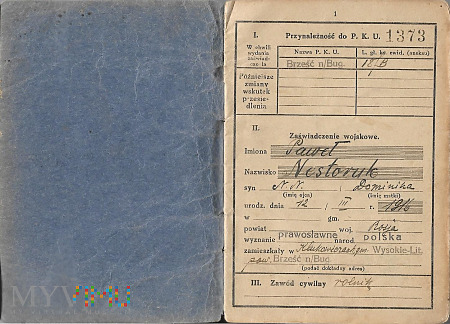 1
I. Przynależność do P. K. U. 1373
W chwili wydania zaświadczenia
Nazwa P. K. U. L. gł. ks. ewid. (ausku)
Brześć n/Bug. 18/B
Późniejsze zmiany wskutek przesiedlenia
II.
Zaświadczenie wojskowe.
Imiona Paweł
Nazwisko Nestoruk
syn N.N. i Dominika
(imię ojca) (imię matki)
urodz. dnia 12 III r. 1916
w gm.
powiat woj. Rosja
wyznanie prawosławne narod. polska
zamieszkały w gm. Wysokie-Lit.
pow. Brześć n/Bug.
(podać dokładny adres)
III. Zawód cywilny rolnik
MYVIMU